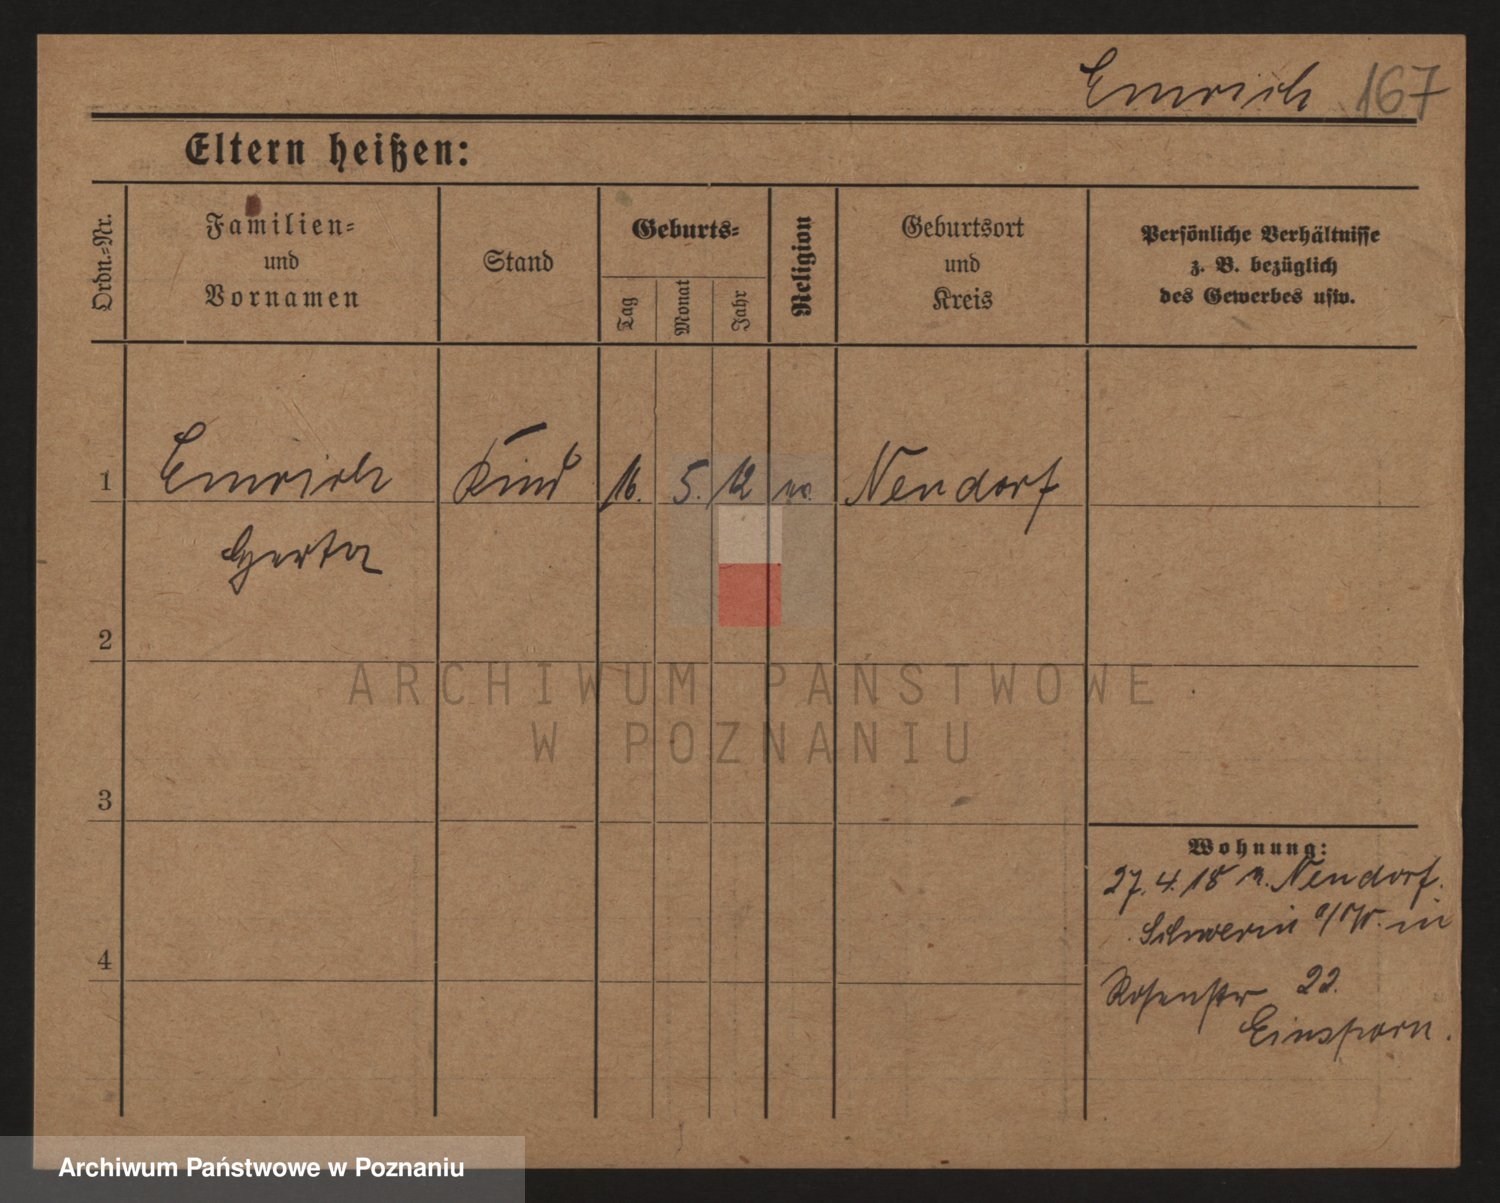 Emrich 167
Eltern heißen:
Ordn.=Nr.
Familien=
und
Vornamen
Stand
Geburts=
Tag
Monat
Jahr
Religion
Geburtsort
und
Kreis
Persönliche Verhältnisse
z. B. bezüglich
des Gewerbes usw.
1 Emrich Kind 16. 5. 12 Neudorf
Gerta
2
3
4
Wohnung:
27. 4. 18 n. Neudorf.
Schwerin a/W. in
Rosenstr 22.
Einsporn.
ARCHIWUM PAŃSTWOWE
W POZNANIU
Archiwum Państwowe w Poznaniu